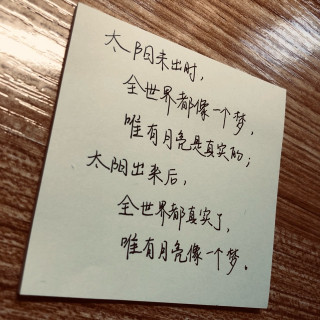 太阳未出时，
全世界都像一个梦，
唯有月亮是真实的；
太阳出来后，
全世界都真实了，
唯有月亮像一个梦。